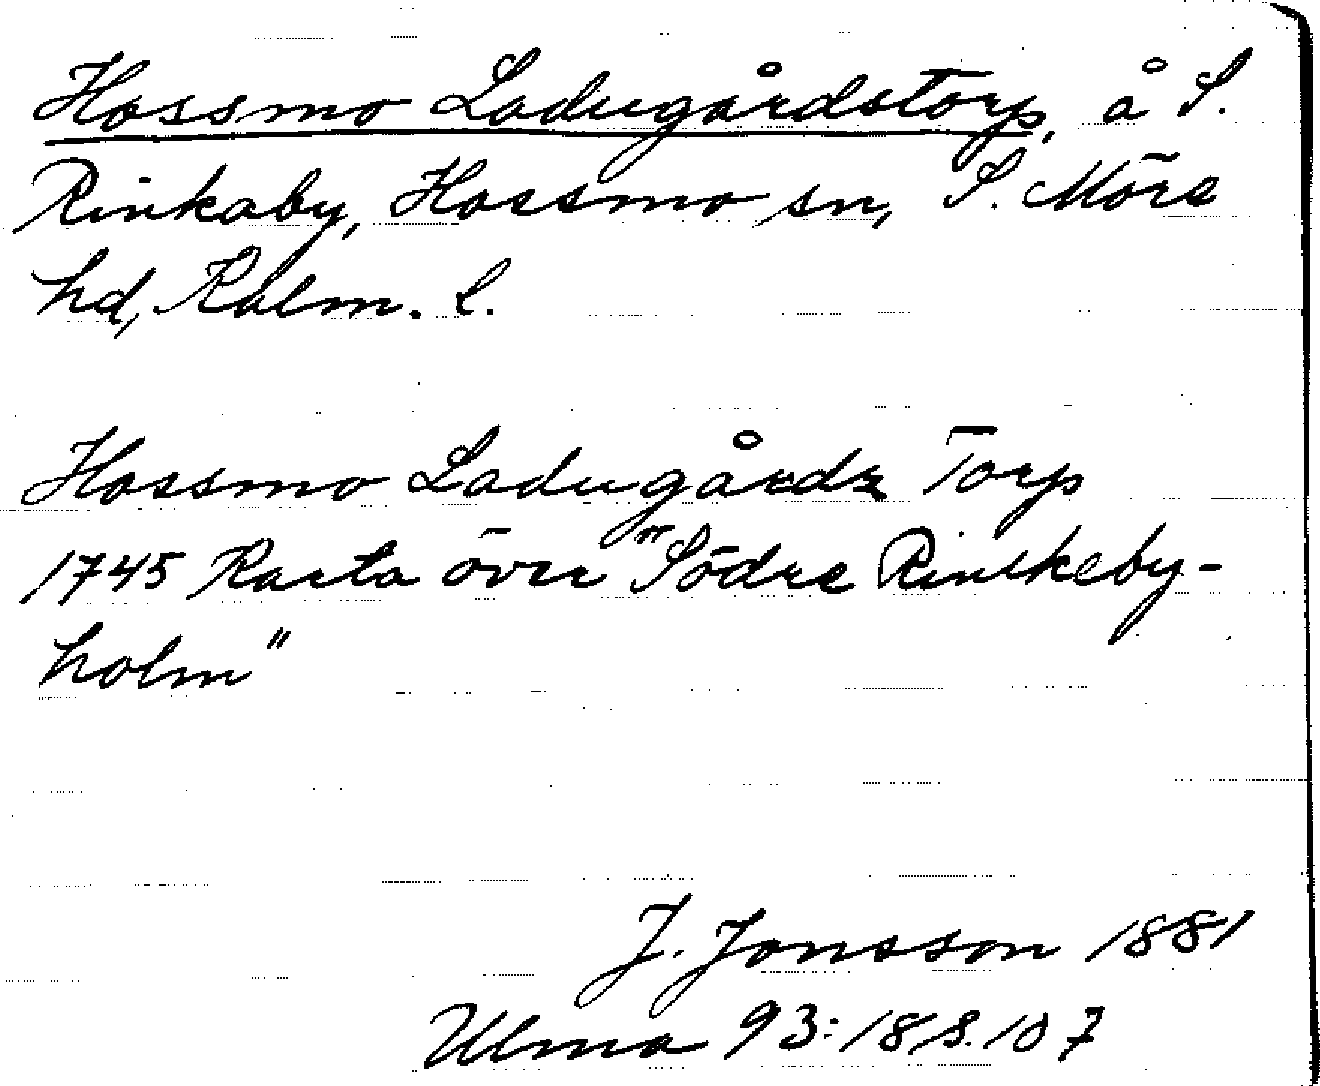 Hossmo Ladugårdstorp, å S.
Rinkaby, Hossmo sn, S. Möre
hd, Kalm. l.
Hossmo Ladugårdz Torp
1745 Karta över "Södre Rinkeby-
holm"
J. Jonsson 1881
Ulma 93:18 s. 107